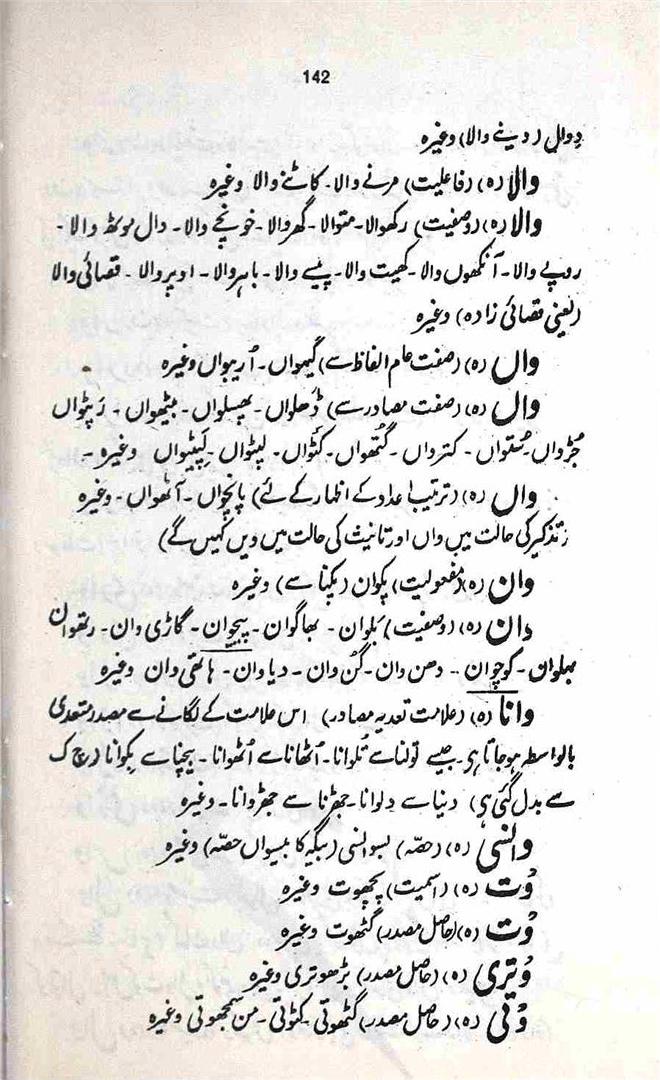 142
دِوال (دینے والا) وغیرہ
والا (ہ) (فاعلیت) مرنے والا۔ کاٹنے والا وغیرہ
والا (ہ) (وصفیت) رکھوالا۔ متوالا۔ گھر والا۔ خونچے والا۔ دال موٹھ والا۔
روپے والا۔ آنکھوں والا۔ کھیت والا۔ پیسے والا۔ باہر والا۔ اوپر والا۔ قصائی والا
(یعنی قصائی زادہ) وغیرہ
واں (ہ) (صفت عام الفاظ سے) گیہواں۔ اُریواں وغیرہ
واں (ہ) (صفت مصادر سے) ڈھلواں۔ پھسلواں۔ بیٹھواں۔ رَپٹواں
جُڑواں۔ سُتواں۔ کترواں۔ گتھواں۔ کٹواں۔ لپٹواں۔ لِپٹیواں وغیرہ۔
واں (ہ) (ترتیب اعداد کے اظہار کے لئے) پانچواں۔ آٹھواں۔ وغیرہ
(تذکیر کی حالت میں واں اور تانیث کی حالت میں ویں کہیں گے)
وان (ہ) (مفعولیت) پکوان (پکنا سے) وغیرہ
وان (ہ) (وصفیت) بَلوان۔ بھاگوان۔ پیچوان۔ گاڑی وان۔ رتھوان
بہلوان۔ کوچوان۔ دھن وان۔ گُن وان۔ دیاوان۔ ہاتھی وان وغیرہ
وانا (ہ) (علامت تعدیہ مصادر) اس علامت کے لگانے سے مصدر متعدی
بالواسطہ ہوجاتا ہی۔ جیسے تولنا سے تُلوانا۔ اُٹھانا سے اُٹھوانا۔ بیچنا سے بِکوانا (چ ک
سے بدل گئی ہی) دینا سے دِلوانا۔ جھڑنا سے جھڑوانا۔ وغیرہ
وانسی (ہ) (حصّہ) بسوانسی (بیگہ کا بیسواں حصّہ) وغیرہ
وُت (ہ) (اسمیت) پچھوت وغیرہ
وُت (ہ) (حاصل مصدر) گٹھوت وغیرہ
وُتری (ہ) (حاصل مصدر) بڑھوتری وغیرہ
وُتی (ہ) (حاصل مصدر) گٹھوتی۔ کٹوتی۔ من سمجھوتی وغیرہ